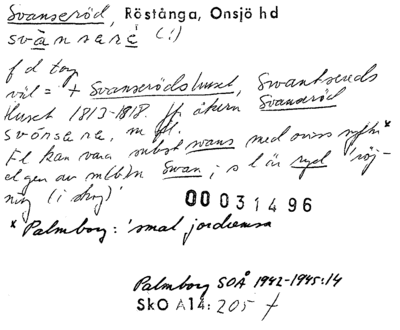 Svanseröd, Röstånga, Onsjö hd
svånsarė (!)
f d torp
väl = + Svanserödshuset, Svantsereds
Huset 1813-1818. Jfr åkern Svanaröd
svönsare, m fl.
Fl kan vara subst svans med oviss syftn*
el gen av m(b)n Svan; sl är ryd 'röj-
ning (i skog)'
00 031496
* Palmborg: 'smal jordremsa
Palmborg SOÅ 1942-1945:14
SkO A14: 205 f